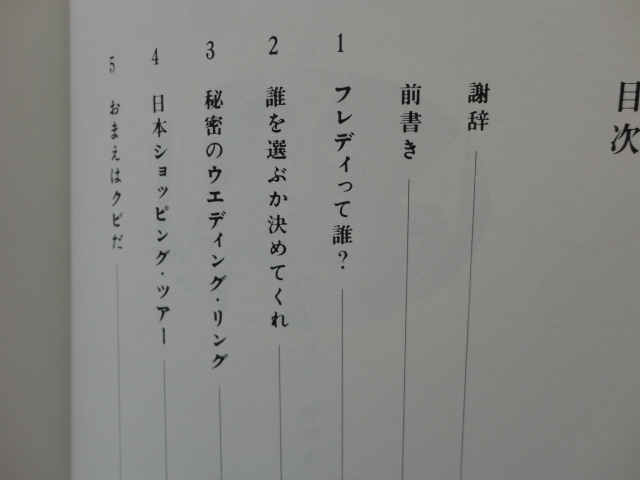 目次
謝辞
前書き
1 フレディって誰?
2 誰を選ぶか決めてくれ
3 秘密のウエディング・リング
4 日本ショッピング・ツアー
5 おまえはクビだ